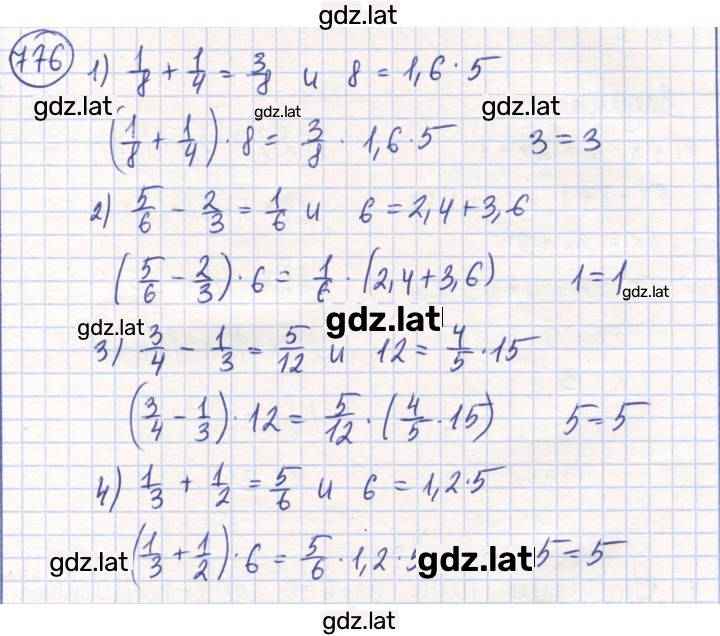 gdz.lat
776 1) 1/8 + 1/4 = 3/8 и 8 = 1,6 · 5
gdz.lat gdz.lat gdz.lat
(1/8 + 1/4) · 8 = 3/8 · 1,6 · 5 3 = 3
2) 5/6 - 2/3 = 1/6 и 6 = 2,4 + 3,6
(5/6 - 2/3) · 6 = 1/6 · (2,4 + 3,6) 1 = 1
gdz.lat
gdz.lat gdz.lat
3) 3/4 - 1/3 = 5/12 и 12 = 4/5 · 15
(3/4 - 1/3) · 12 = 5/12 · (4/5 · 15) 5 = 5
4) 1/3 + 1/2 = 5/6 и 6 = 1,2 · 5
gdz.lat (1/3 + 1/2) · 6 = 5/6 · 1,2 · 5 gdz.lat 5 = 5
gdz.lat